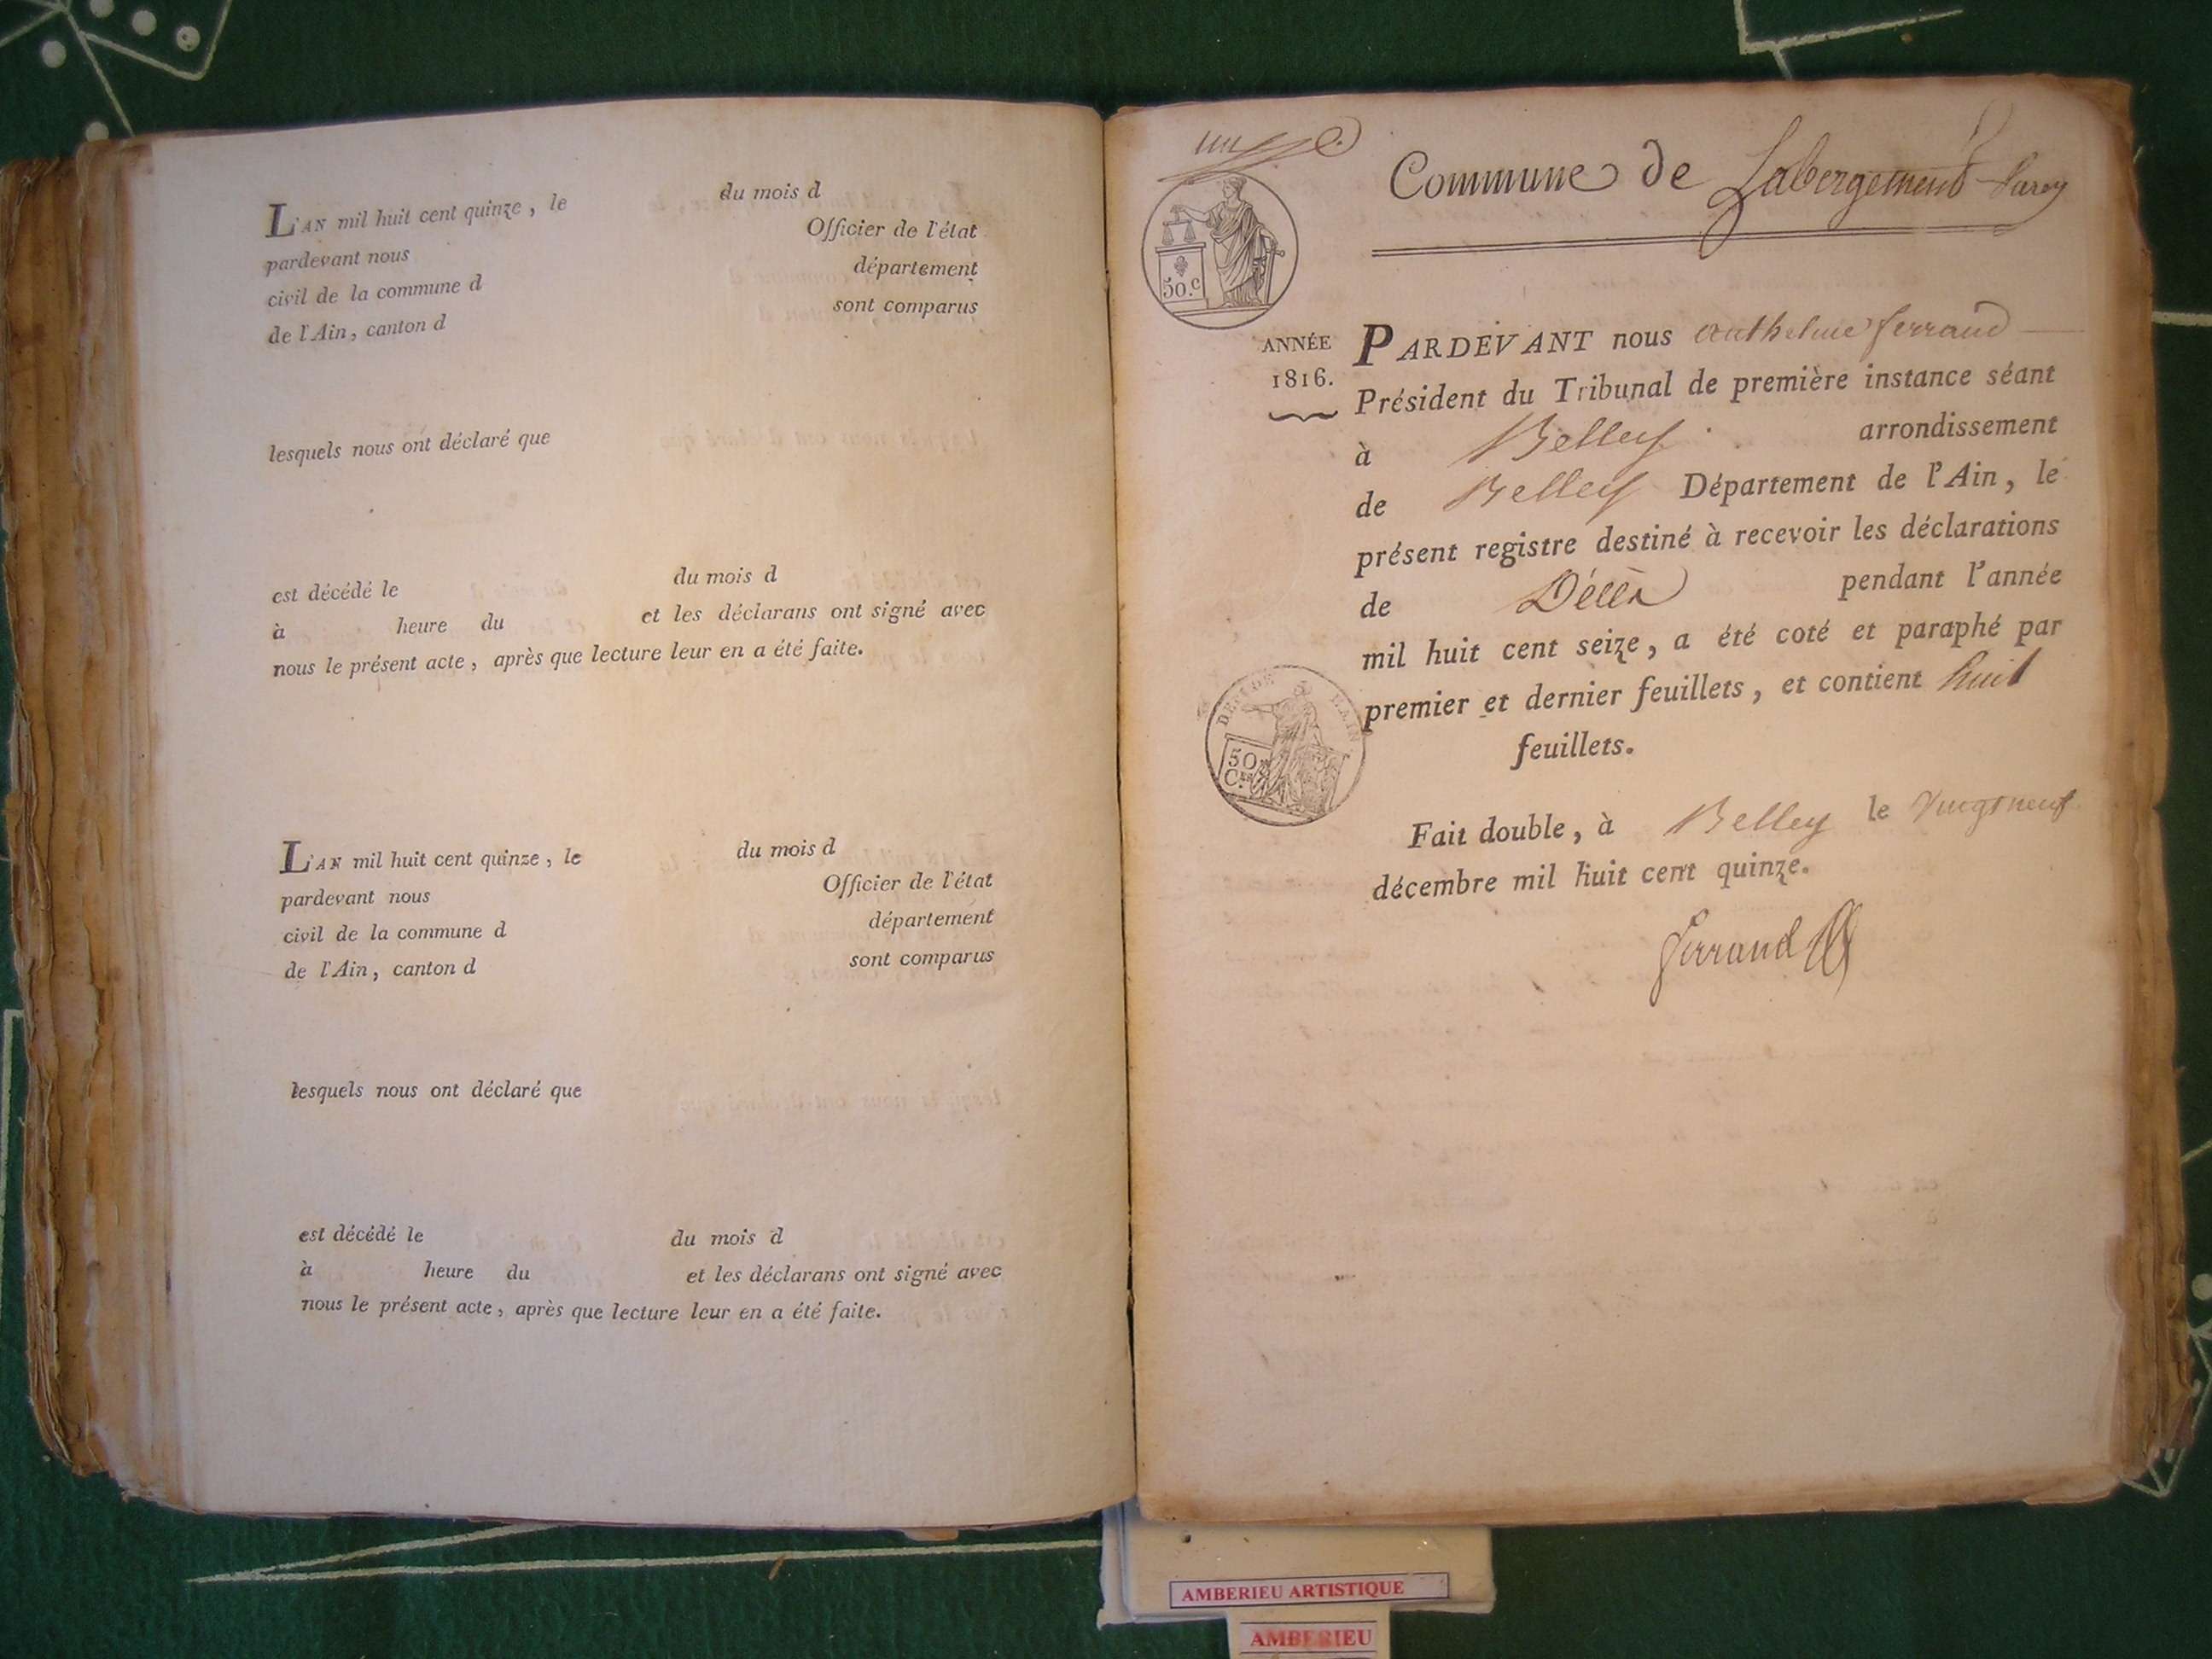 L'AN mil huit cent quinze, le du mois d
pardevant nous Officier de l'état
civil de la commune d département
de l'Ain, canton d sont comparus
lesquels nous ont déclaré que
est décédé le du mois d
à heure du et les déclarans ont signé avec
nous le présent acte, après que lecture leur en a été faite.
L'AN mil huit cent quinze, le du mois d
pardevant nous Officier de l'état
civil de la commune d département
de l'Ain, canton d sont comparus
lesquels nous ont déclaré que
est décédé le du mois d
à heure du et les déclarans ont signé avec
nous le présent acte, après que lecture leur en a été faite.
Commune de Labergement Varey
50.c
ANNÉE
1816.
PARDEVANT nous anthelme ferrand
Président du Tribunal de première instance séant
à Belley arrondissement
de Belley Département de l'Ain, le
présent registre destiné à recevoir les déclarations
de Décès pendant l'année
mil huit cent seize, a été coté et paraphé par
premier et dernier feuillets, et contient huit
feuillets.
50
Ces
Fait double, à Belley le Vingt neuf
décembre mil huit cent quinze.
ferrand
AMBERIEU ARTISTIQUE
AMBERIEU